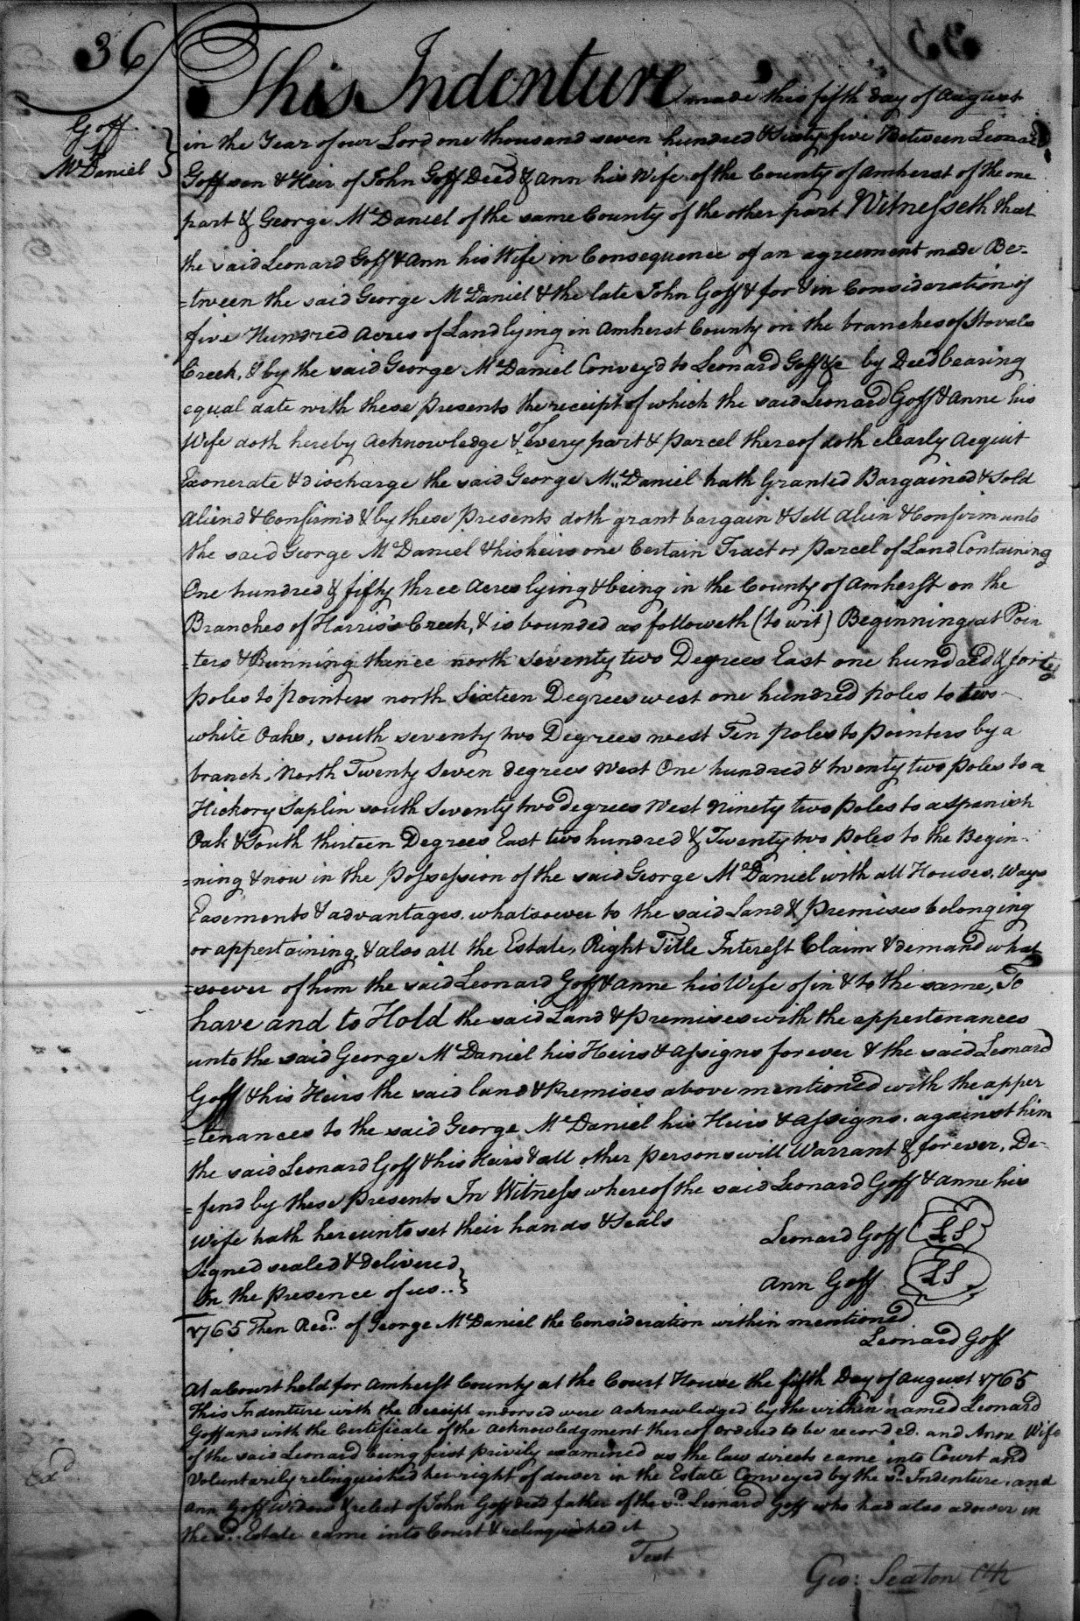 36
Goff
To
McDaniel
This Indenture made this fifth day of August
in the Year of our Lord one thousand seven hundred & Sixty five Between Leonard
Goff son & Heir of John Goff Deed & Ann his Wife of the County of Amherst of the one
part & George McDaniel of the same County of the other part Witnesseth that
the said Leonard Goff & Ann his Wife in Consequence of an agreement made Be-
=tween the said George McDaniel & the late John Goff & for & in Consideration of
five Hundred Acres of Land lying in Amherst County on the branches of Stovals
Creek, & by the said George McDaniel Convey'd to Leonard Goff &c by Deed bearing
equal date with these presents the receipt of which the said Leonard Goff & Anne his
Wife doth hereby Acknowledge & of Every part & parcel thereof doth clearly Acquit
Exonerate & discharge the said George McDaniel hath Granted Bargained & Sold
Aliend & Confirmd & by these presents doth grant bargain & Sell Alien & Confirm unto
the said George McDaniel & his heirs one Certain Tract or parcel of Land Containing
One hundred & fifty three Acres lying & being in the County of Amherst on the
Branches of Harris's Creek, & is bounded as followeth (to wit) Beginning at Poin
=ters & Running thence north Seventy two Degrees East one hundred & forty
poles to pointers north Sixteen Degrees west one hundred poles to two
white Oaks, south seventy two Degrees west Ten poles to pointers by a
branch, North Twenty Seven degrees West One hundred & twenty two poles to a
Hickory Saplin south Seventy two degrees West Ninety two poles to a spanish
Oak & South thirteen Degrees East two hundred & Twenty two poles to the Begin-
=ning & now in the Possession of the said George McDaniel with all Houses, Ways
Easements & advantages whatsoever to the said Land & premises belonging
or appertaining, & also all the Estate, Right Title Interest Claim & demand what
=soever of him the said Leonard Goff & Anne his Wife of in & to the same, To
have and to Hold the said Land & premises with the appertenances
unto the said George McDaniel his Heirs & Assigns for ever & the said Leonard
Goff & his Heirs the said land & Premises above mentioned with the apper
=tenances to the said George McDaniel his Heirs & Assigns, against him
the said Leonard Goff & his Heirs & all other persons will Warrant & for ever, De-
=fend by these presents In Witness whereof the said Leonard Goff & Anne his
Wife hath hereunto set their hands & Seals
Leonard Goff LS
Signed sealed & delivered
In the presence of us..
Ann Goff LS
1765 Then Recd. of George McDaniel the Consideration within mentioned
Leonard Goff
At a Court held for Amherst County at the Court House the fifth Day of August 1765
This Indenture with the Receipt endorsed were Acknowledged by the within named Leonard
Goff and with the Certificate of the Acknowledgment thereof ordered to be recorded. and Anne Wife
of the said Leonard being first privily examined as the law directs came into Court and
Voluntarily relinquished her right of dower in the Estate Conveyed by the sd. Indenture, and
Ann Goff Widow & relict of John Goff decd father of the sd. Leonard Goff who had also a dower in
the sd. Estate came into Court & relinquished it
Test
Geo: Seaton Clk
Exd.